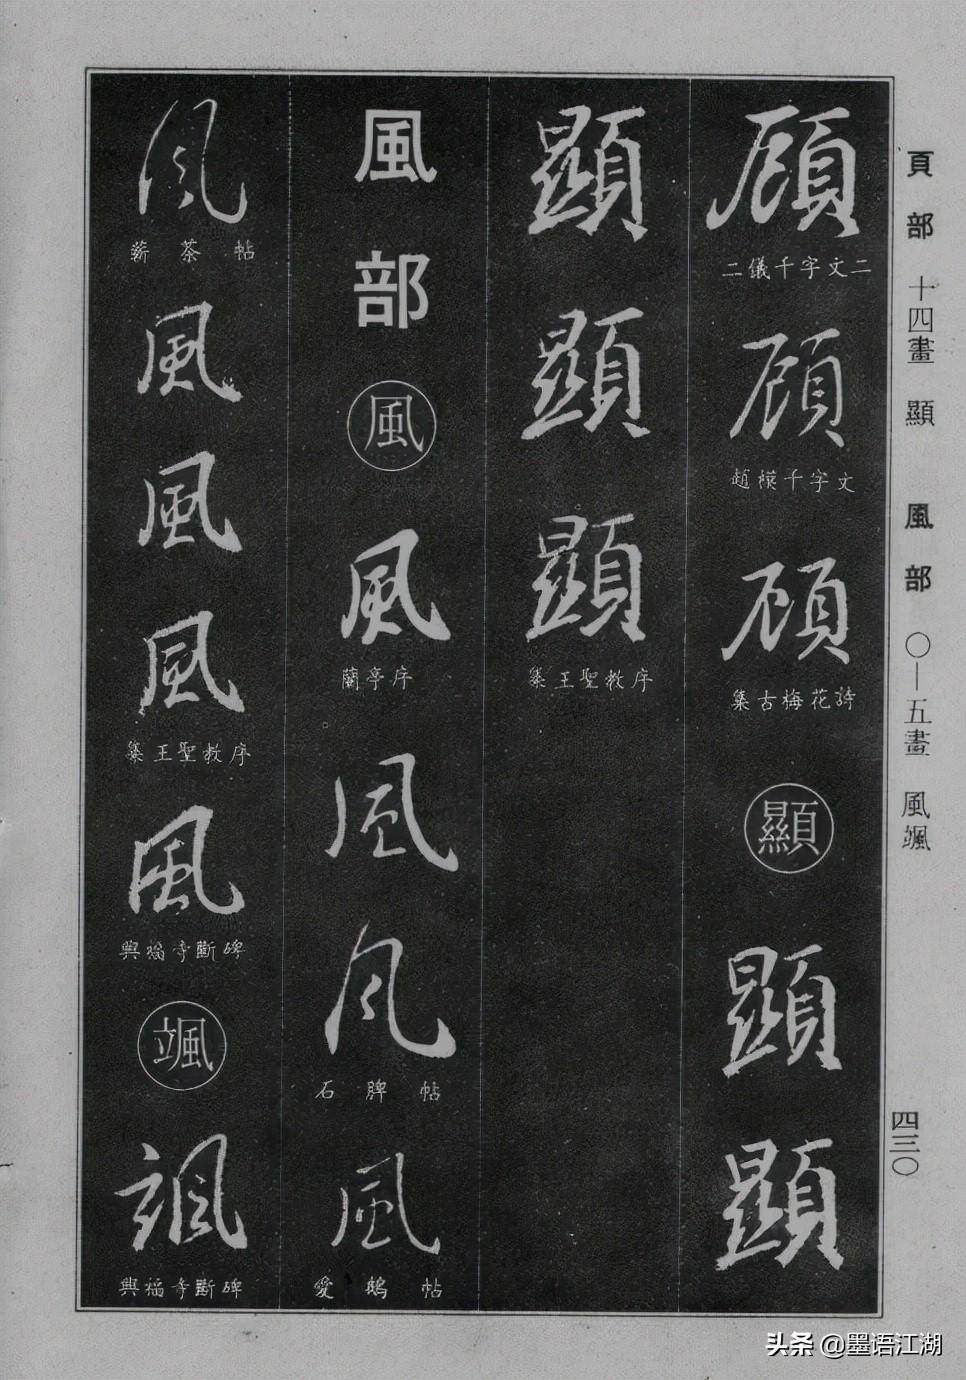 頁部 十四畫 顯 風部 〇—五畫 風颯
四三〇
顧
二儀千字文二
顧
趙模千字文
顧
集古梅花詩
顯
顯
顯
顯
顯
顯
集王聖教序
風部
風
風
蘭亭序
風
風
石脾帖
風
愛鵝帖
風
蘄茶帖
風
風
風
集王聖教序
風
興福寺斷碑
颯
颯
興福寺斷碑
头条 @墨语江湖